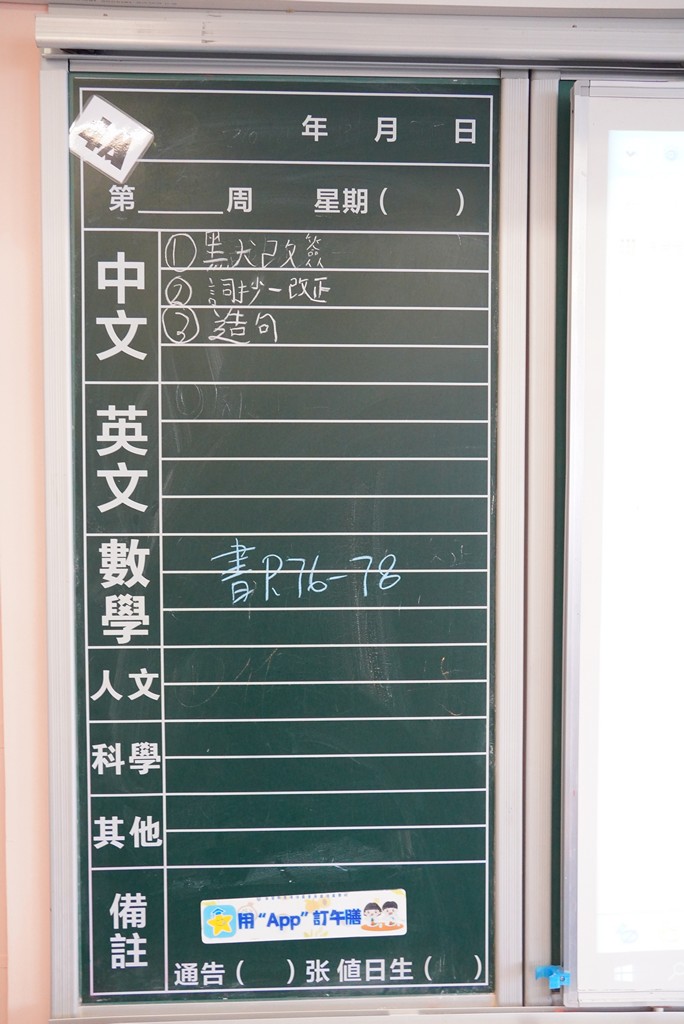 4A
年 月 日
第______周 星期( )
中文
①黑犬改簽
②詞抄一改正
③造句
英文
數學
書P.76-78
人文
科學
其他
備註
用“App”訂午膳
通告( )张 值日生( )